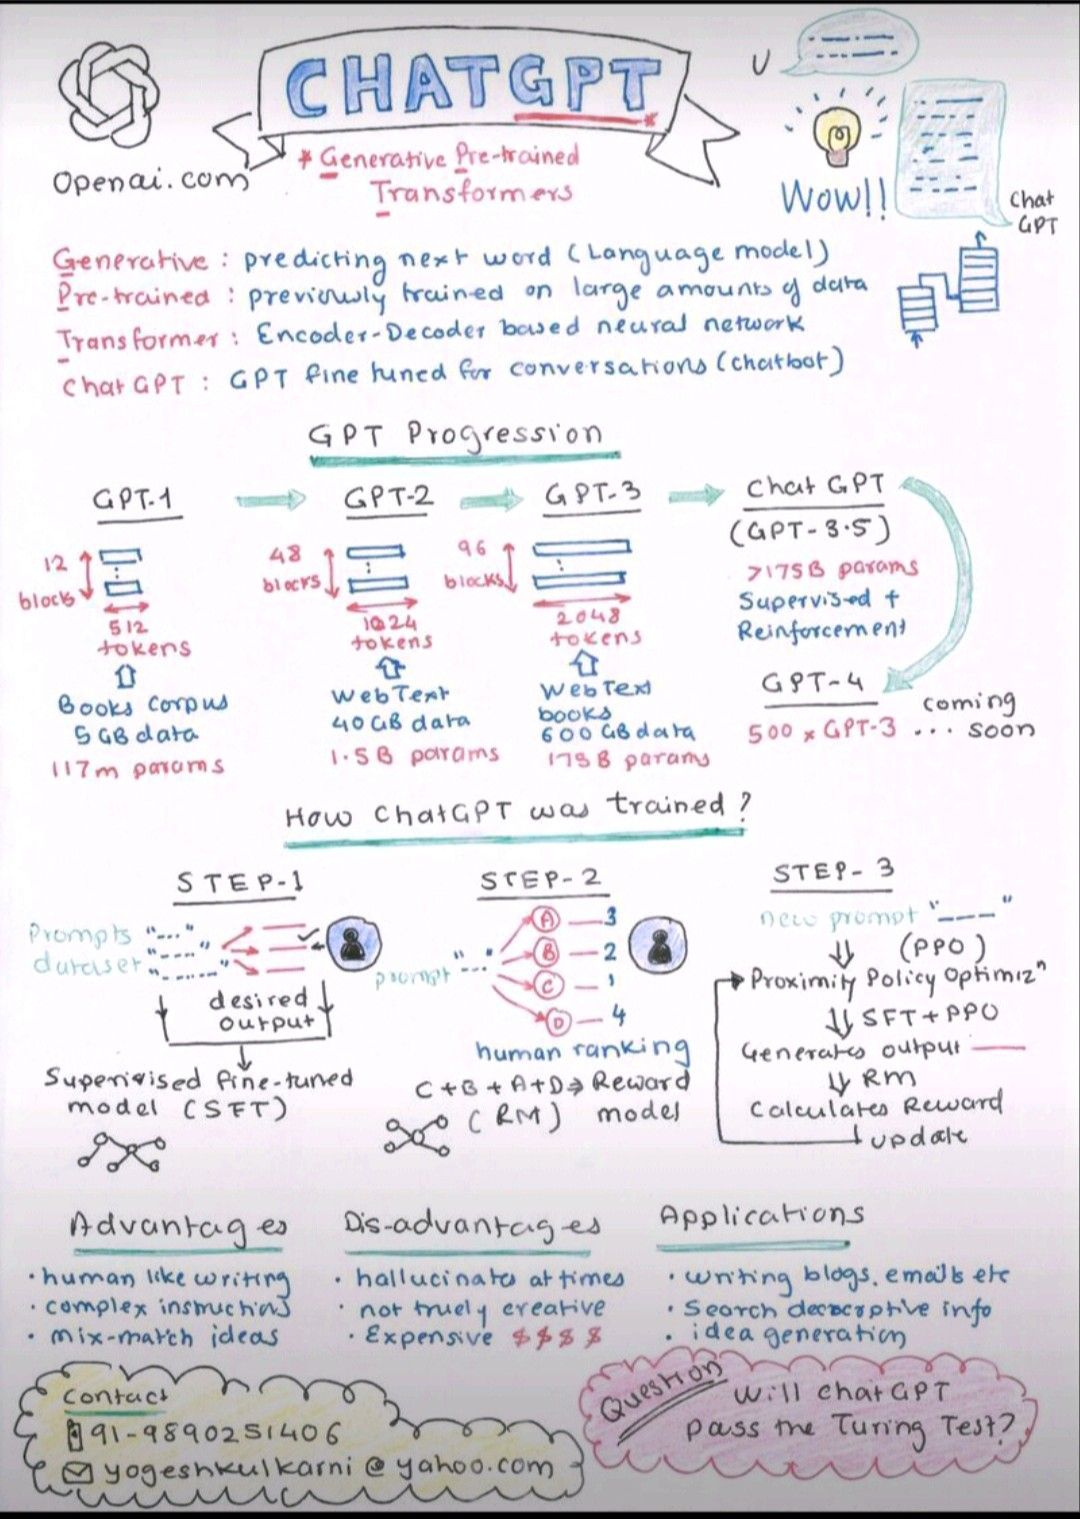 CHATGPT
U
Openai.com
* Generative Pre-trained
Transformers
Wow!!
Chat
GPT
Generative : predicting next word (Language model)
Pre-trained : previously trained on large amounts of data
Transformer : Encoder-Decoder based neural network
Chat GPT : GPT fine tuned for conversations (chatbot)
GPT Progression
GPT-1
12
blocks
512
tokens
Books Corpus
5 GB data
117m params
GPT-2
48
blocks
1024
tokens
WebText
40 GB data
1.5B params
GPT-3
96
blocks
2048
tokens
WebText
books
600 GB data
175B params
Chat GPT
(GPT-3.5)
>175B params
Supervised +
Reinforcement
GPT-4
500 x GPT-3 ... coming soon
How ChatGPT was trained?
STEP-1
Prompts "..."
dataset "......"
"......."
desired
output
Supervised fine-tuned
model (SFT)
STEP-2
prompt "..."
A — 3
B — 2
C — 1
D — 4
human ranking
C+B+A+D => Reward
(RM) model
STEP-3
new prompt "----"
(PPO)
Proximity Policy Optimizn
SFT+PPO
Generates output —
RM
Calculates Reward
update
Advantages
• human like writing
• complex instructions
• mix-match ideas
Dis-advantages
• hallucinates at times
• not truely creative
• Expensive $$$$
Applications
• writing blogs, emails etc
• Search info
• idea generation
Contact
91-9890251406
yogeshkulkarni@yahoo.com
Question
Will chatGPT
pass the Turing Test?